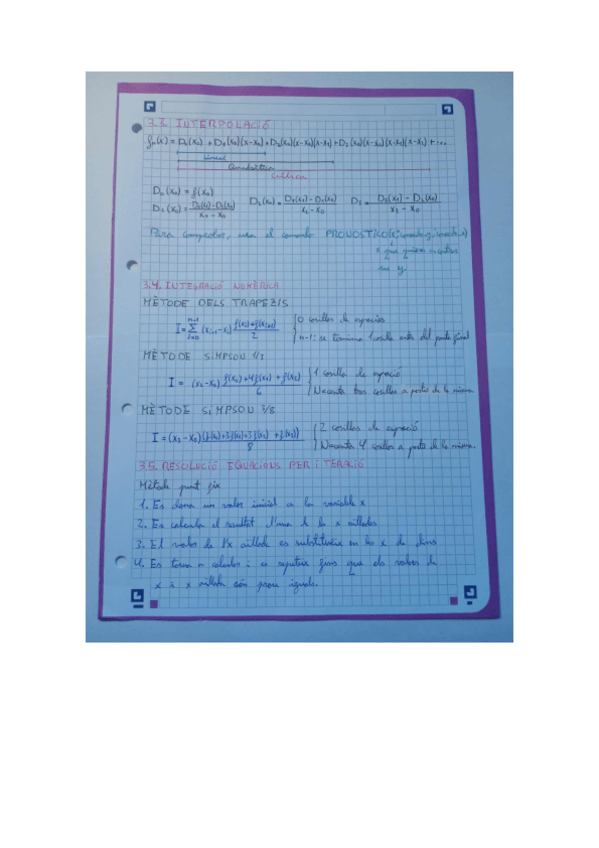 3.3. INTERPOLACIÓ
fₙ(x) = D₀(x₀) + D₁(x₀)(x-x₀) + D₂(x₀)(x-x₀)(x-x₁) + D₃(x₀)(x-x₀)(x-x₁)(x-x₂) + ...
Lineal
Quadràtica
Cúbica
D₀(x₀) = f(x₀)
D₁(x₀) =
x₁ - x₀
D₂(x₀) =
x₂ - x₀
D₃ =
x₃ - x₀
Para comprobar, usa el comando PRONOSTICO
x que quieres
su y.
3.4. INTEGRACIÓ NUMÈRICA
MÈTODE DELS TRAPEZIS
I = Σ (xᵢ₊₁ - xᵢ) (f(xᵢ) + f(xᵢ₊₁)) / 2
i=0
n-1
0 casillas de
n-1: se termina 1 casilla antes del punto final
MÈTODE SIMPSON 1/3
I = (x₂ - x₀) (f(x₀) + 4f(x₁) + f(x₂)) / 6
1 casilla de
Necesita tres casillas a partir de la misma.
MÈTODE SIMPSON 3/8
I = (x₃ - x₀) (f(x₀) + 3f(x₁) + 3f(x₂) + f(x₃)) / 8
2 casillas de
Necesita 4 casillas a partir de la misma.
3.5. RESOLUCIÓ EQUACIONS PER ITERACIÓ
Mètode punt fix
1. Es dona un valor inicial a la variable x
2. Es calcula el resultat d'una de les x aïllades
3. El valor de l'x aïllada es substitueix en les x de dins
4. Es torna a calcular i es repeteix fins que els valors de
x i x aïllada són prou iguals.